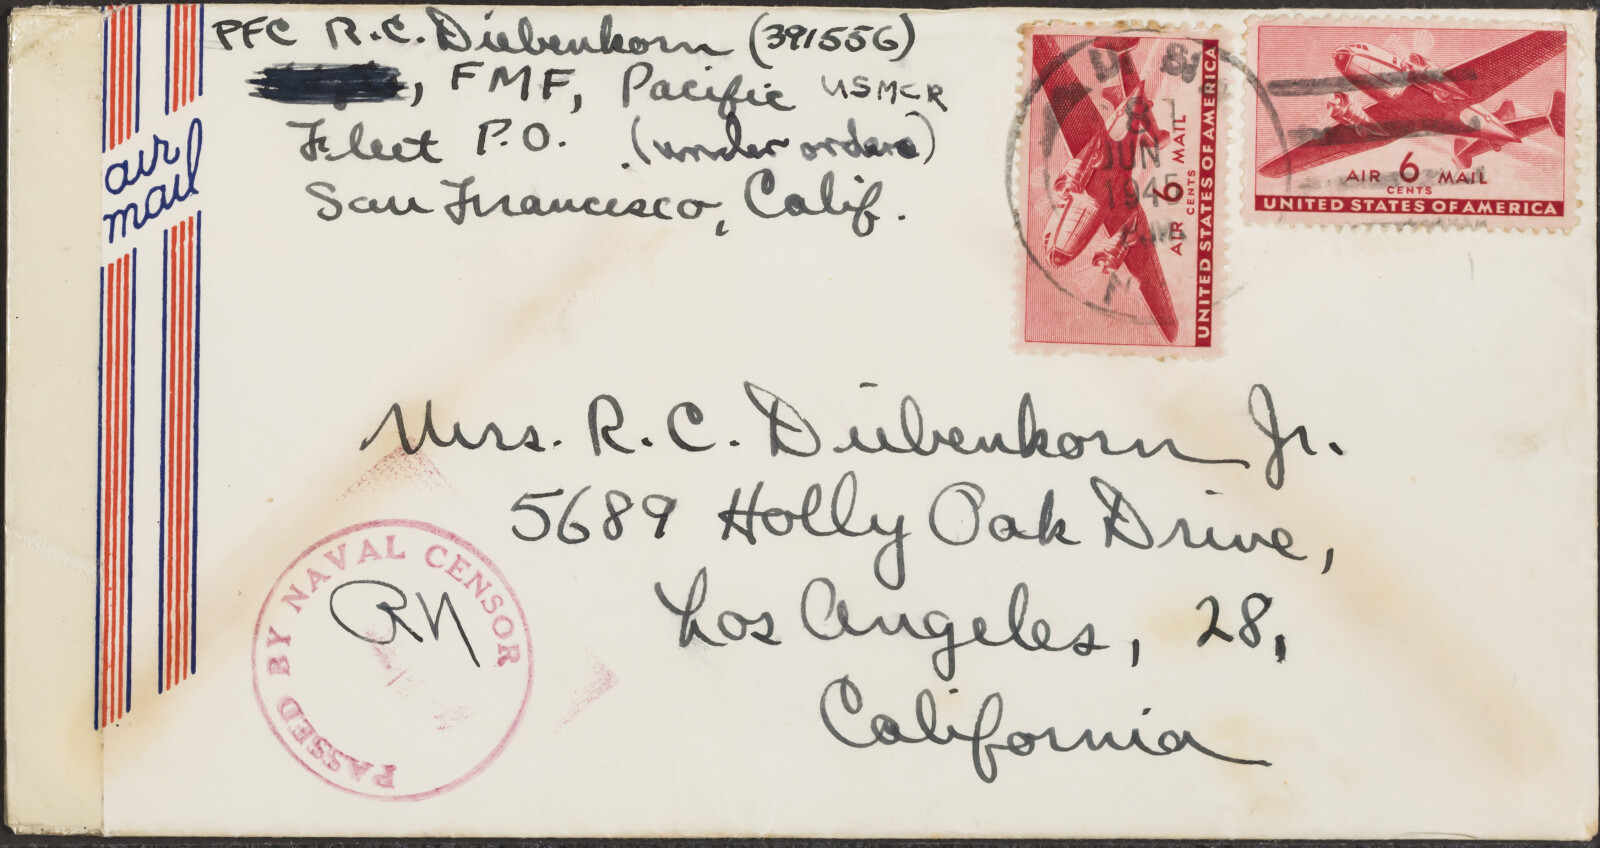 PFC R.C. Diebenkorn (391556)
, FMF, Pacific USMCR
Fleet P.O. (under orders)
San Francisco, Calif.
air
mail
8
JUN
1945
6
CENTS
AIR MAIL
UNITED STATES OF AMERICA
AIR 6 MAIL
CENTS
UNITED STATES OF AMERICA
Mrs. R.C. Diebenkorn Jr.
5689 Holly Oak Drive,
Los Angeles, 28,
California
PASSED BY NAVAL CENSOR